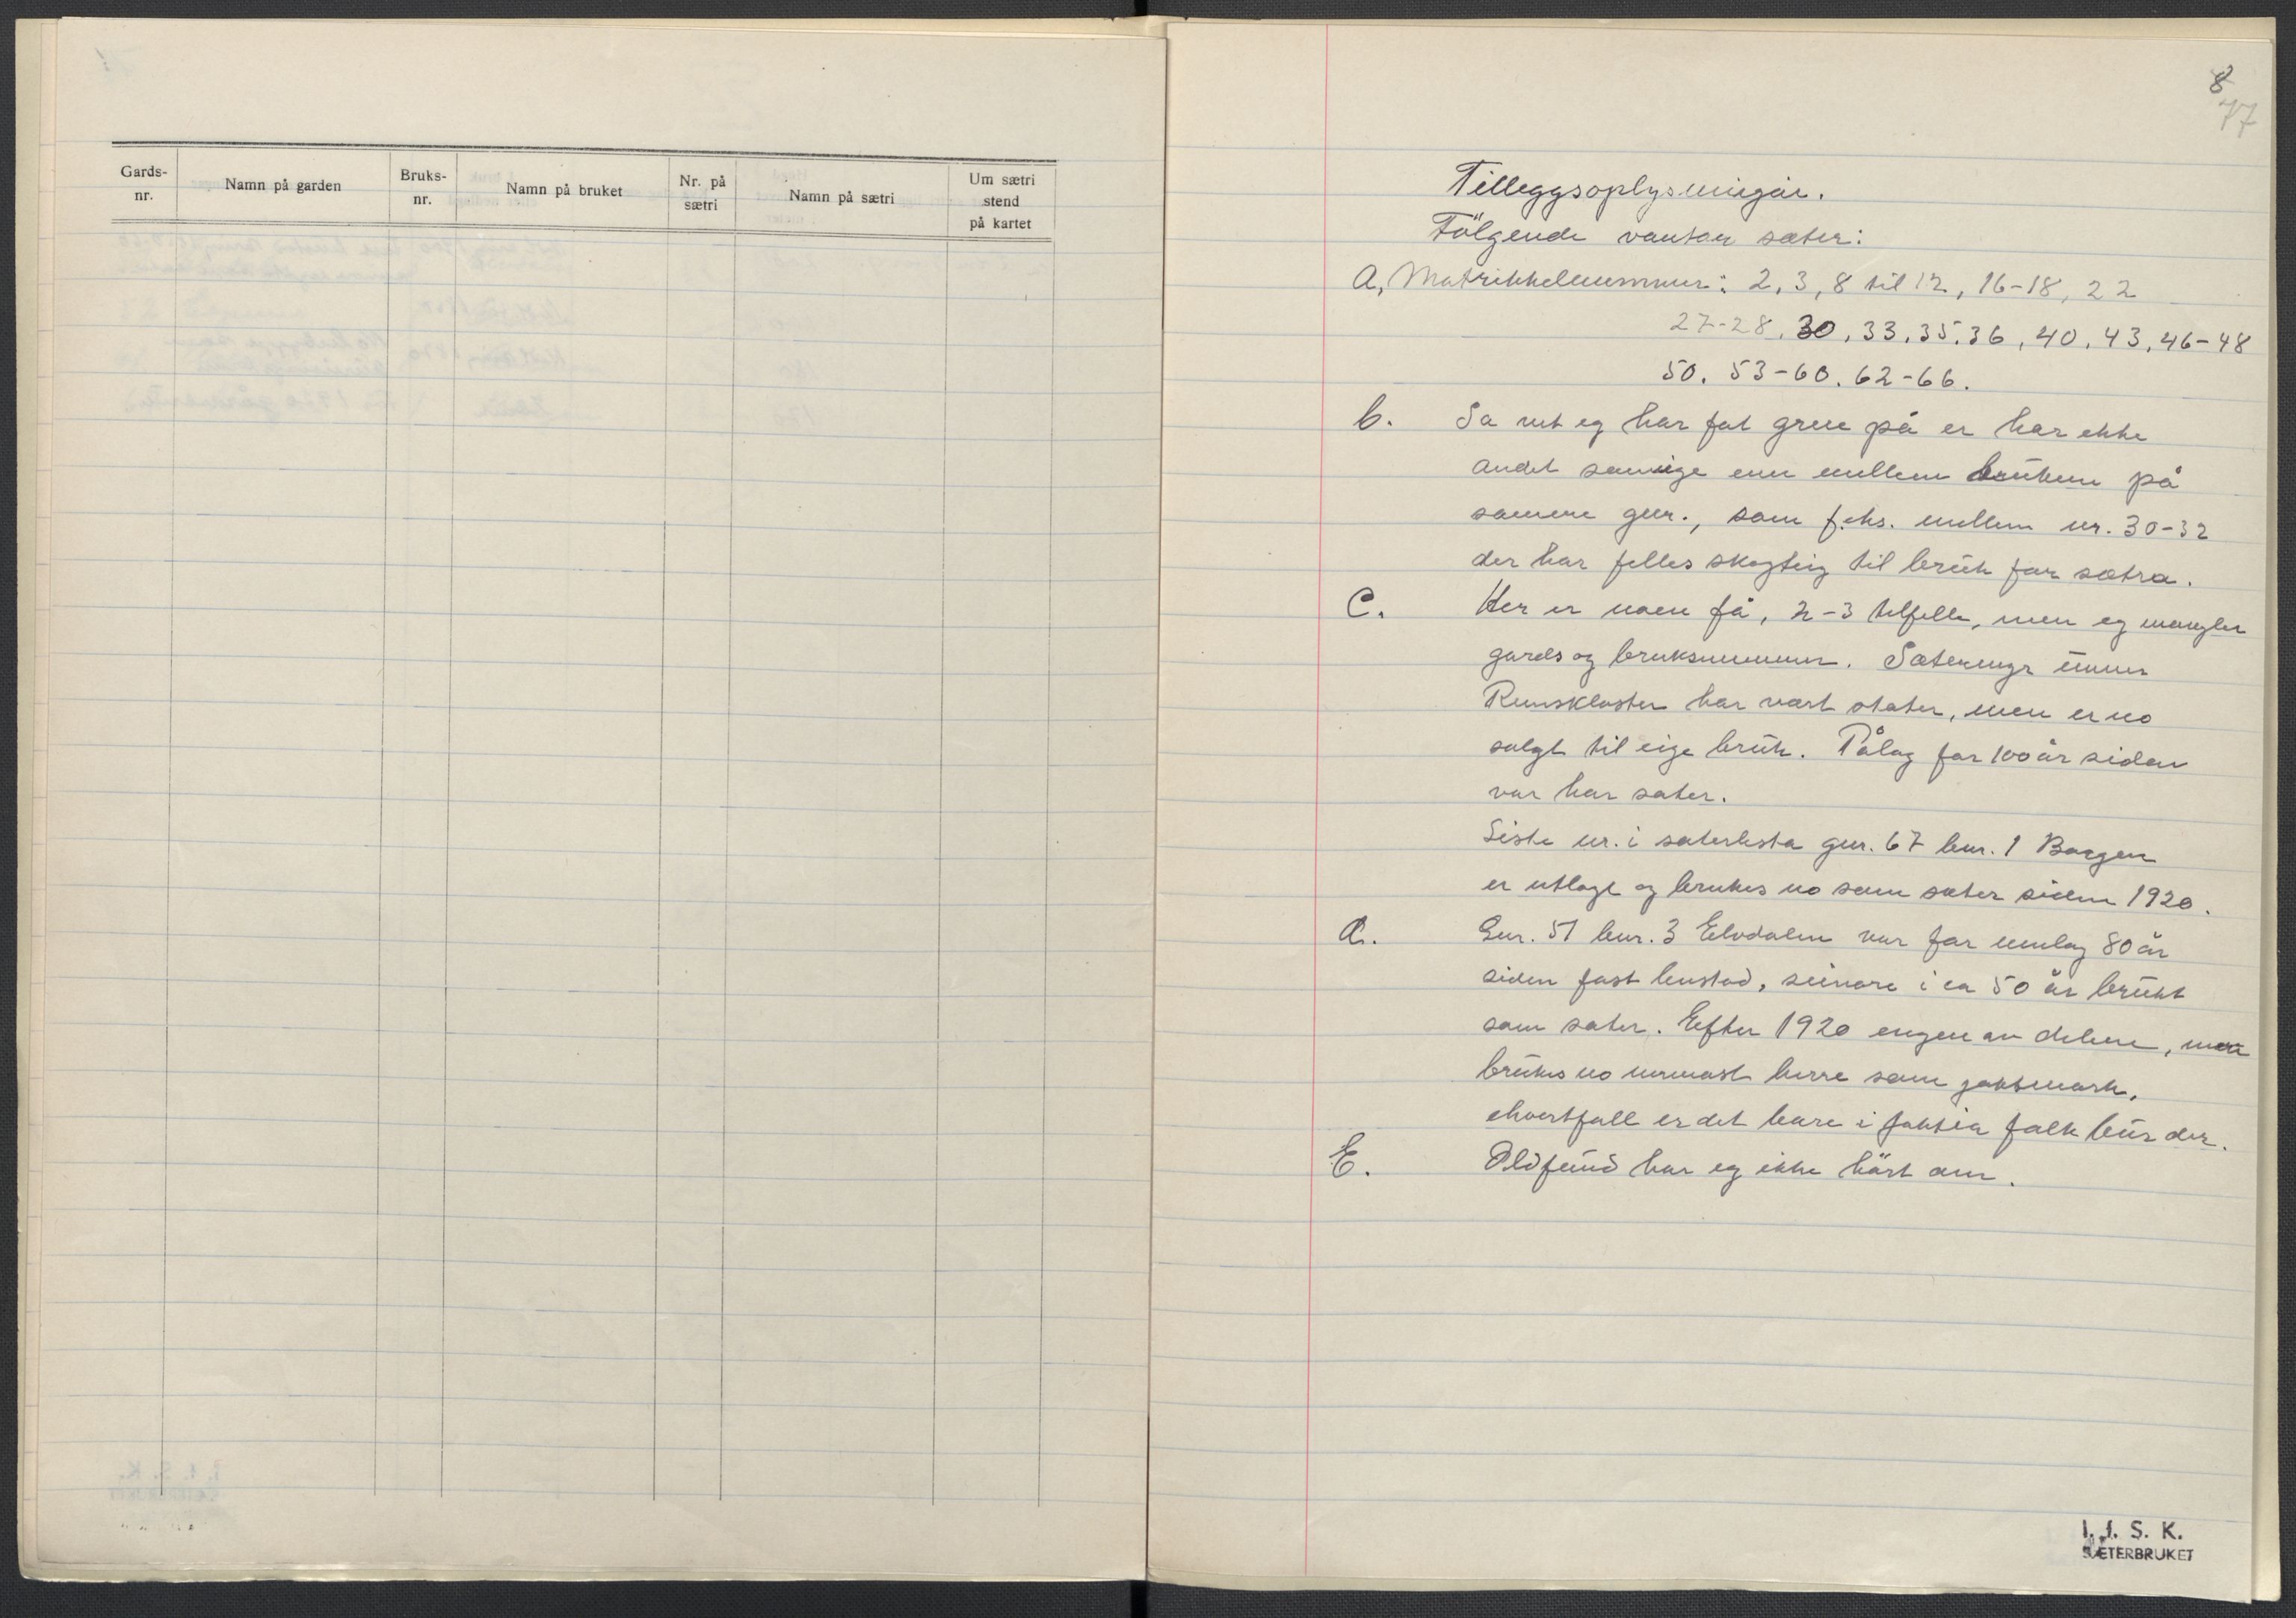 Gards-
nr.
Namn på garden
Bruks-
nr.
Namn på bruket
Nr. på
sætri
Namn på sætri
Um sætri
stend
på kartet
8
77
Tilleggsoplysningar.
Fölgende vantar sæter:
A, Matrikkelnummer: 2, 3, 8 til 12, 16-18, 22
27-28, 30, 33, 35, 36, 40, 43, 46-48
50, 53-60, 62-66.
b. Sa vit eg har fat greie på er har ekke
andet sameige enn mellem brüken på
samme gnr., som f.eks. mellem nr. 30-32
der har felles skogteig til brük for sætra.
C. Her er noen få, 2-3 tilfelle, men eg mangler
gards og bruksnummer. Sæterengr ünner
Reinskloster har vært stater, men er no
solgt til eige brük. Pålag for 100 år siden
var har sæter.
Siste nr. i sæterlista gnr. 67 bnr. 1 Borgen
er utlagt og brukes no som sæter siden 1920.
d. Gnr. 51 bnr. 3 Elvdalen var for umlag 80 år
siden fast bustad, seinare i ca 50 år brükt
som sæter. Efter 1920 engen av delene, men
brükes no nermast berre som jaktmark,
ehvertfall er det bare i jaktia folk bür der.
E. Oldfünd har eg ikke hört om.
I. f. S. K.
SÆTERBRUKET